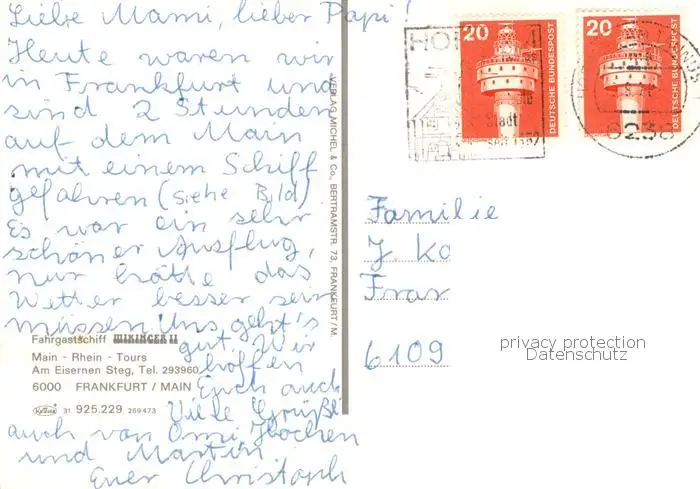 Liebe Mami, lieber Papi!
Heute waren wir
in Frankfurt und
sind 2 Stunden
auf dem Main
mit einem Schiff
gefahren (siehe Bild)
Es war ein sehr
schöner Ausflug,
nur hätte das
Wetter besser sein
müssen. Uns geht's
gut. Wir
hoffen
Euch auch
Viele Grüße
auch von Omi, Jochen
und Martin
Euer Christoph
Fahrgastschiff WIKINGER II
Main - Rhein - Tours
Am Eisernen Steg, Tel. 293960
6000 FRANKFURT / MAIN
31 925.229 269473
VERLAG MICHEL & Co., BERTRAMSTR. 73, FRANKFURT/M.
20 DEUTSCHE BUNDESPOST
20 DEUTSCHE BUNDESPOST
Stadt
6238
Familie
J Ko
Fran
6109
privacy protection
Datenschutz